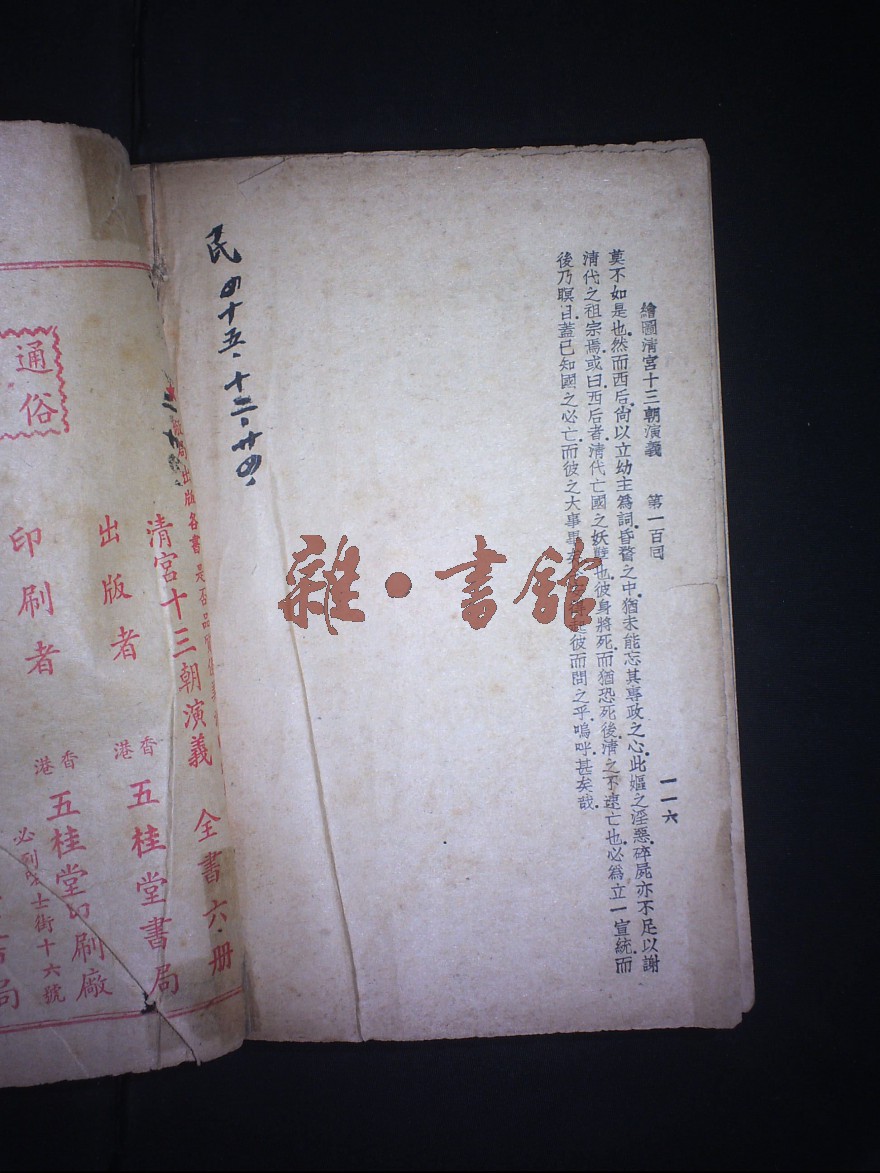 繪圖清宮十三朝演義 第一百囘 一一六
莫不如是也.然而西后.尙以立幼主爲詞.昏瞀之中.猶未能忘其專政之心.此嫗之淫惡.碎屍亦不足以謝
清代之祖宗焉.或曰.西后者.清代亡國之妖孽也.彼身將死.而猶恐死後.清之不速亡也.必爲立一宣統.而
後乃瞑目.蓋已知國之必亡.而彼之大事畢 彼而問之乎.嗚呼.甚矣哉.
民四十五.十二.廿四.
雜·書館
局出版各書 是否品
清宮十三朝演義 全書六冊
出版者 香港 五桂堂書局
印刷者 香港 五桂堂印刷廠
必列啫士街十六號
局
通俗